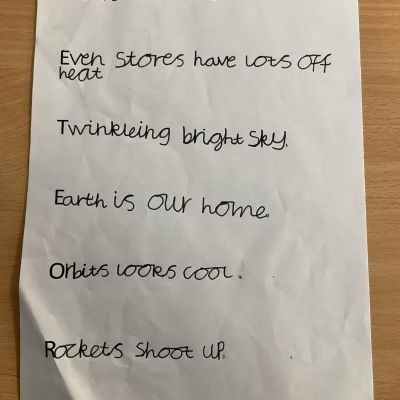 Even stores have lots off
heat
Twinkleing bright sky.
Earth is our home.
Orbits looks cool.
Rockets shoot up.